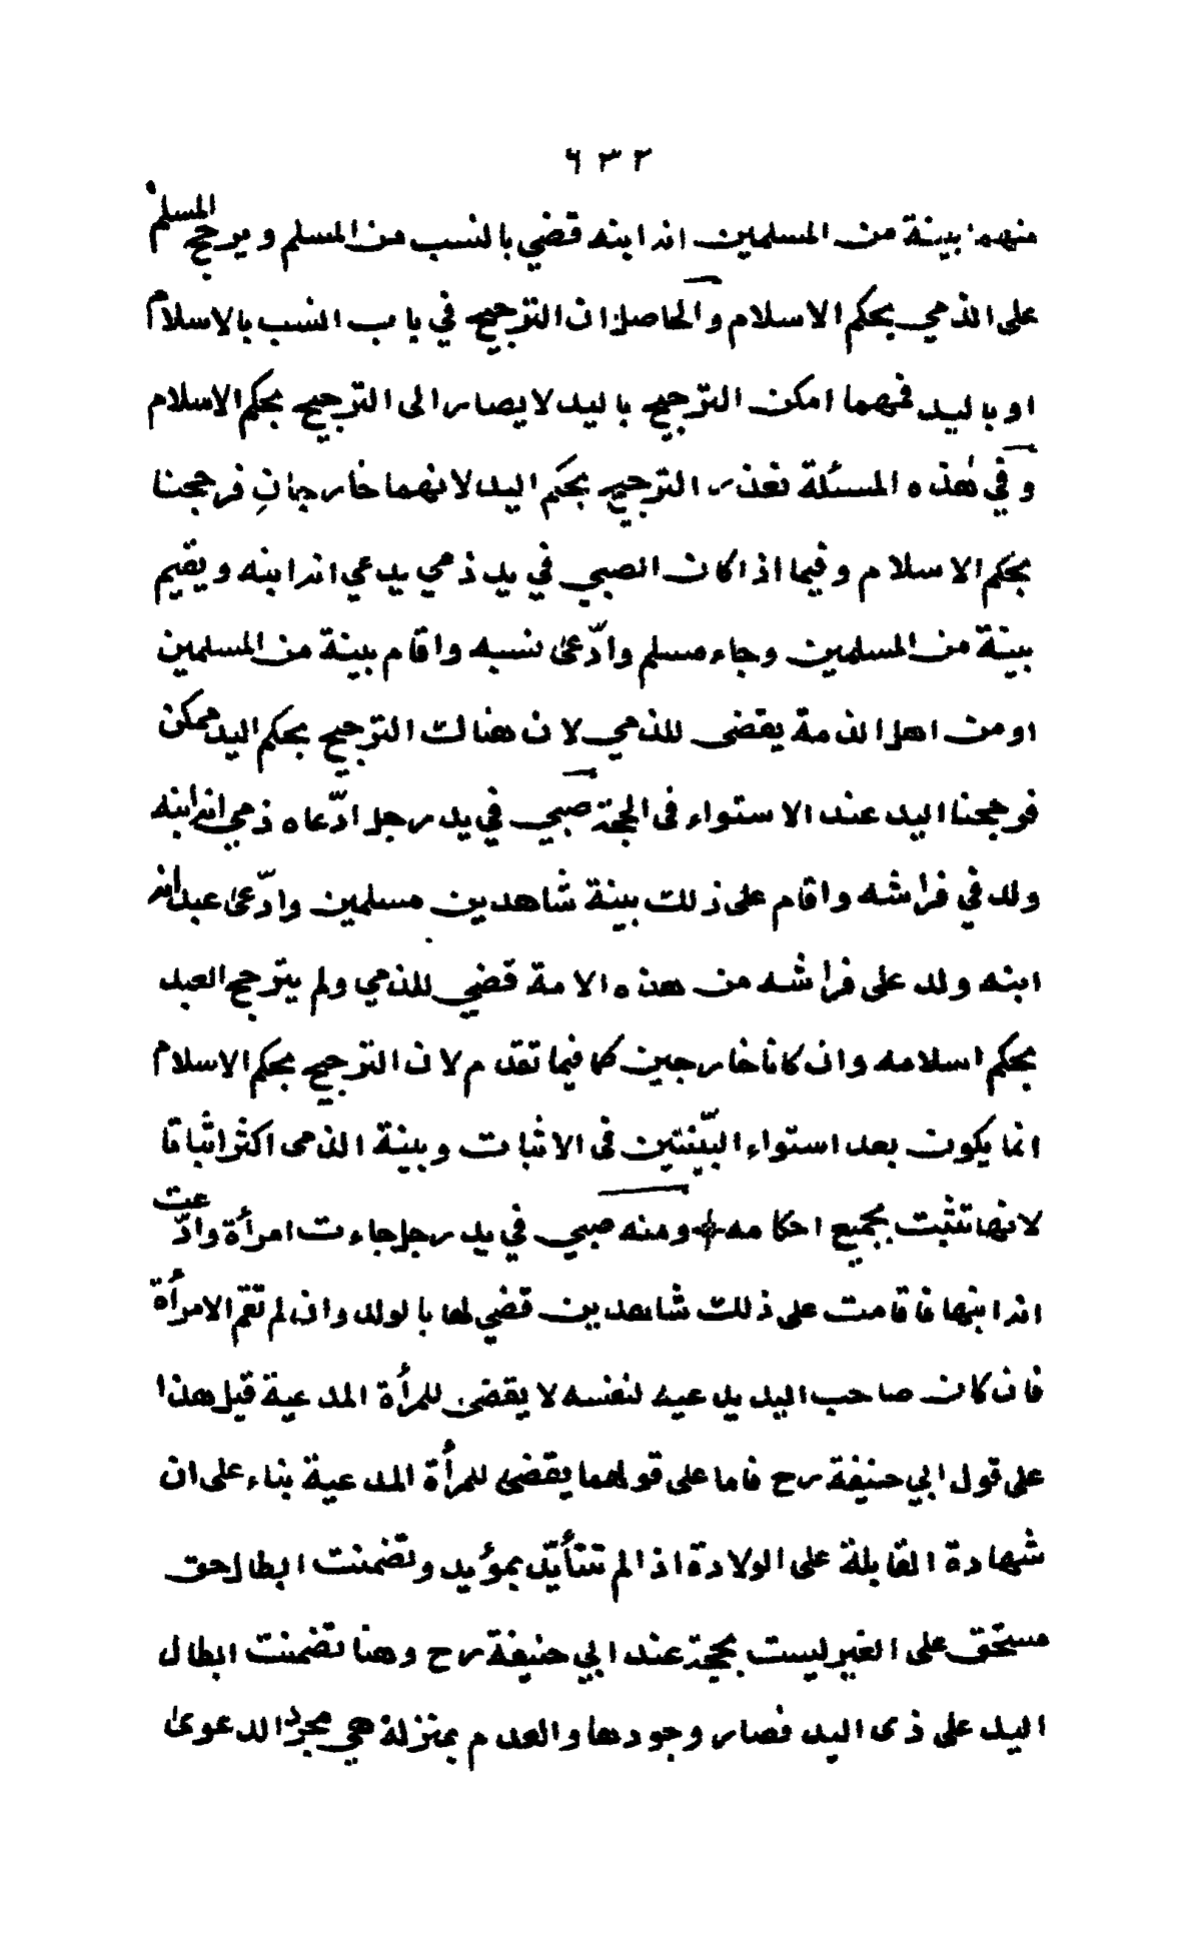 ٦٣٢
منهما بينة من المسلمين انه ابنه قضي بالنسب من المسلم ويرجح المسلم
على الذمي بحكم الاسلام والحاصل ان الترجيح في باب النسب بالاسلام
او باليد فمهما امكن الترجيح باليد لا يصار الى الترجيح بحكم الاسلام
وفي هٰذه المسئلة تعذر الترجيح بحكم اليد لانهما خارجانِ فرجحنا
بحكم الاسلام وفيما اذا كان الصبي في يد ذمي يدعي انه ابنه ويقيم
بينة من المسلمين وجاء مسلم وادّعى نسبه واقام بينة من المسلمين
او من اهل الذمة يقضى للذمي لان هناك الترجيح بحكم اليد ممكن
فرجحنا اليد عند الاستواء فى الحجة صبي في يد رجل ادّعاه ذمي انه ابنه
ولد في فراشه واقام على ذلك بينة شاهدين مسلمين وادّعى عبد انه
ابنه ولد على فراشه من هذه الامة قضي للذمي ولم يترجح العبد
بحكم اسلامه وان كانا خارجين كما فيما تقدم لان الترجيح بحكم الاسلام
انما يكون بعد استواء البّينتين فى الاثبات وبينة الذمى اكثر اثباتا
لانها تثبت بجميع احكامه ومنه صبي في يد رجل جاءت امرأة وادّعت
انه ابنها فاقامت على ذلك شاهدين قضي لها بالولد وان لم تقم الامرأة
فان كان صاحب اليد يدعيه لنفسه لا يقضى للمرأة المدعية قيل هذا
على قول ابي حنيفة رح فاما على قولهما يقضى للمرأة المدعية بناء على ان
شهادة القابلة على الولادة اذا لم تتأيّد بمؤيد وتضمنت ابطال حق
مستحق على الغير ليست بحجة عند ابي حنيفة رح وهنا تضمنت ابطال
اليد على ذى اليد فصار وجودها والعدم بمنزلة هي مجرد الدعوى